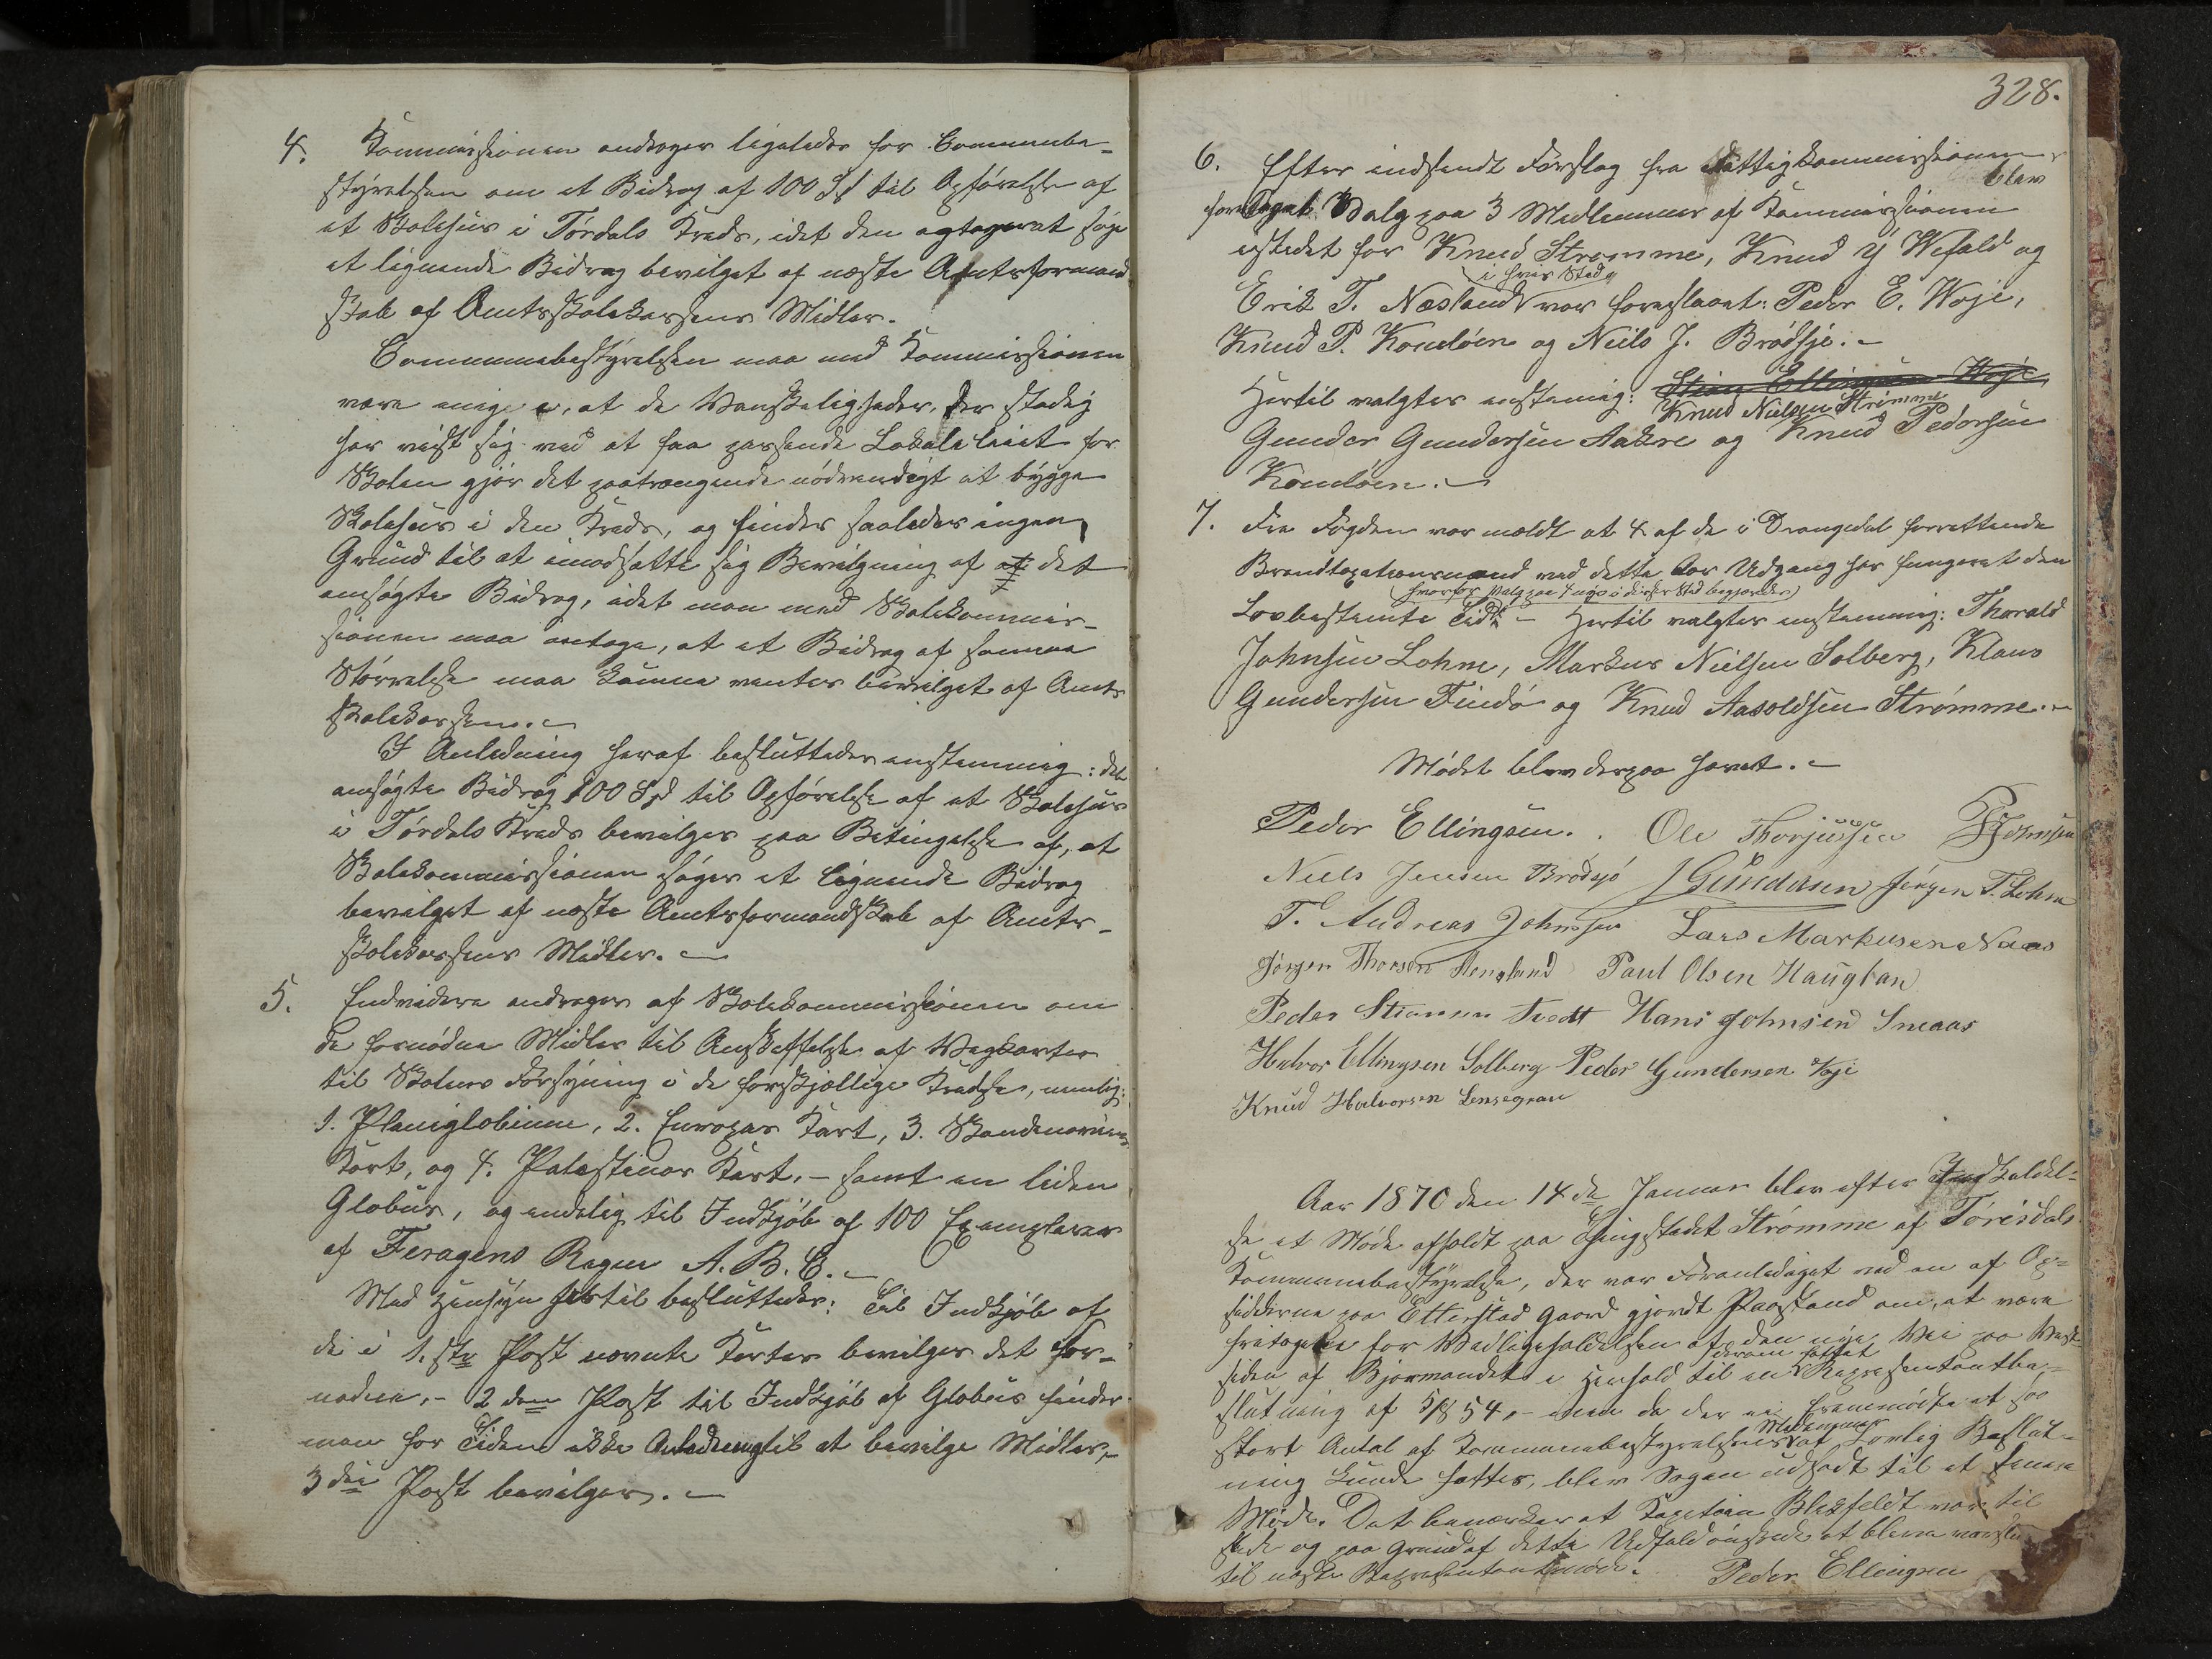 4. Kommissionen andrager ligeledes for Communebe-
styrelsen om et Bidrag af 100 Spd til Opførelse af
et Skolehus i Tørdals Kreds, idet den agter at søge
et lignende Bidrag bevilget af næste Amtsformand-
skab af Amtsskolekassens Midler.
Communebestyrelsen maa med Kommissionen
være enige i, at de Vanskeligheder, der stadig
har viist sig ved at faa passende Lokale leiet for
Skolen gjør det paatrængende nødvendigt at bygge
Skolehus i den Kreds, og finder saaledes ingen
Grund til at imodsætte sig Bevilgning af det
ansøgte Bidrag, idet man med Skolekommis-
sionen maa antage, at et Bidrag af samme
Størrelse maa kunne ventes bevilget af Amts
skolekassen.-
I Anledning heraf besluttedes enstemmig: det
ansøgte Bidrag 100 Spd til Opførelse af et Skolehus
i Tørdals Kreds bevilges paa Betingelse af, at
Skolekommissionen søger et lignende Bidrag
bevilget af næste Amtsformandskab af Amts-
skolekassens Midler.-
5. Endvidere andrages af Skolekommissionen om
de fornødne Midler til Anskaffelse af Vægkarter
til Skolens Forsyning i de forskjællige Kredse, nemlig:
1. Planiglobium, 2. Europas Kart, 3. Skandinaviens
Kart, og 4. Palæstinas Kart, - samt en liden
Globus, og endelig til Indkjøb af 100 Exemplarer
af Feragens Regne A. B. C.-
Med Hensyn hertil besluttedes: Til Indkjøb af
de i 1.ste Post nævnte Karter bevilges det for-
nødne,- 2den Post til Indkjøb af Globus finder
man for Tiden ikke Anledning til at bevilge Midler,-
3die Post bevilges.-
328.
6. Efter indsendt Forslag fra Fattigkommissionen
blev
foretaget Valg paa 3 Medlemmer af Kommissionen
istedet for Knud Strømme, Knud Y Wefald og
i hvis Sted
Erik T. Næsland var foreslaaet: Peder E. Woje,
Knud P. Koudøen og Niels J. Brødsjø.-
Hertil valgtes enstemmig: Stian Ellingsen Woje,
Knud Nielsen Strømme
Gunder Gundersen Aakre og Knud Pedersen
Koudøen.-
7. Fra Fogden var mældt at 4 af de i Drangedal forrettende
Brandtaxationsmænd ved dette Aars Udgang har fungeret den
hvorfor Valg paa 4 nye i disses Sted begjæredes
Lovbestemte Tid.- Hertil valgtes enstemmig: Thorald
Johnsen Lohne, Markus Nielsen Solberg, Klaus
Gundersen Findø og Knud Aasoldsen Strømme.-
Mødet blev derpaa hævet.-
Peder Ellingsen. Ole Thorjussen Johnsen
Niels Jensen Brødsjø Gundersen Jørgen T. Lohne
T. Andreas Johnsen Lars Markusen Naas
Jørgen Thorsen Henseland Paul Olsen Haugtan
Peder Stiansen Tvedt Hans Johnsen Smaas
Halvor Ellingsen Solberg Peder Gundersen Voje
Knud Halvorsen Lensegrav
Aar 1870 den 14de Januar blev efter Indkaldel-
se et Møde afholdt paa Thingstedet Strømme af Tørisdals
Kommunebestyrelse, der var foranlediget ved en af Op-
sidderne paa Ettestad Gaard gjordt Paastand om, at være
fritagen for Vedligeholdelsen af den nye Vei paa Vest-
derom fattet
siden af Bjørvandet i Henhold til en Repræsentantbe-
slutning af 5/8 54,- men da der ei fremmødte et saa
Medlemmer
stort Antal af Kommunebestyrelsens at lovlig Beslut-
ning kunde fattes, blev Sagen udsadt til et senere
Møde. Det bemærkes at Kaptein Blekfeldt var til
stede og paa Grund af dette Udfald ønskede at blive varslet
til næste Repræsentantmøde. Peder Ellingsen